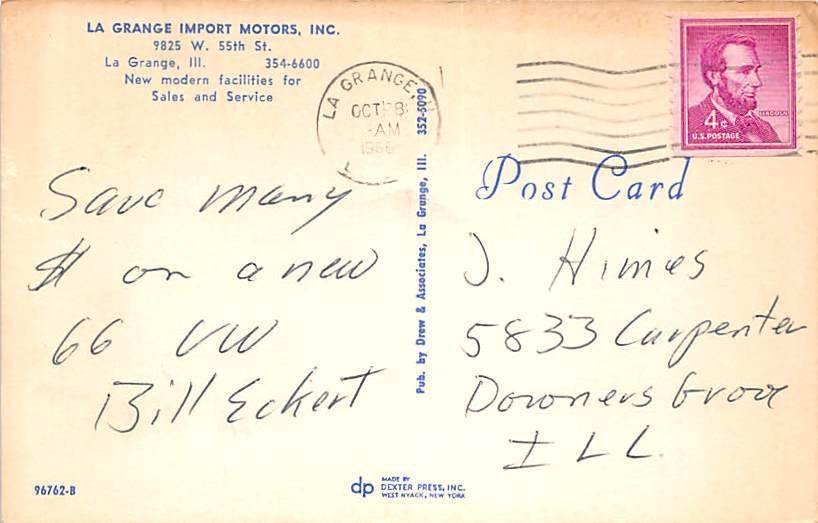 LA GRANGE IMPORT MOTORS, INC.
9825 W. 55th St.
La Grange, Ill. 354-6600
New modern facilities for
Sales and Service
LA GRANGE,
OCT 8
-AM
1966
4¢
LINCOLN
U.S. POSTAGE
Post Card
Save many
$ on a new
66 VW
Bill Eckert
Pub. by Drew & Associates, La Grange, Ill. 352-5090
J. Himes
5833 Carpenter
Downers Grove
ILL.
96762-B
dp
MADE BY
DEXTER PRESS, INC.
WEST NYACK, NEW YORK